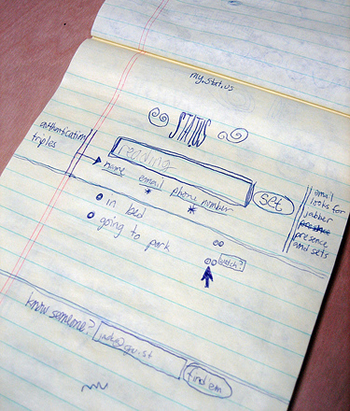 my.stat.us
STATUS
authentication
triples
reading
name email phone number
set
email
looks for
jabber
presence
and sets
in bed
going to park
watch?
know someone?
find em